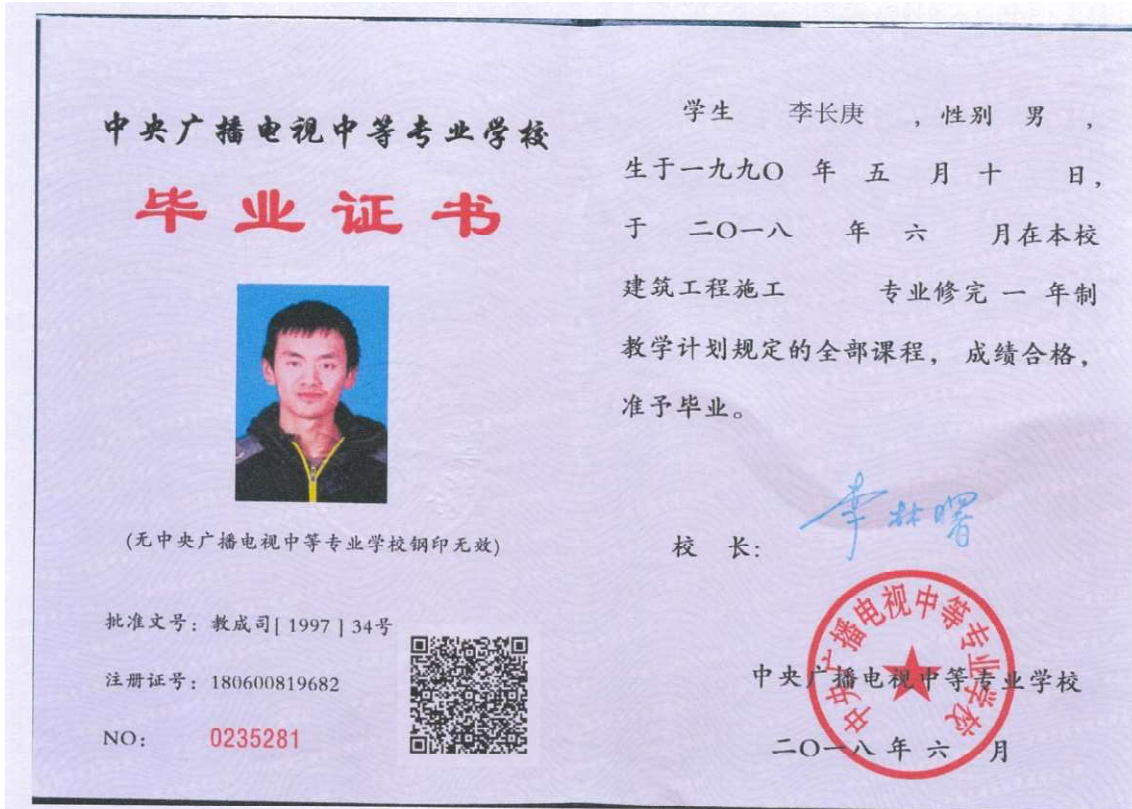 中央广播电视中等专业学校
毕业证书
(无中央广播电视中等专业学校钢印无效)
批准文号：教成司[ 1997 ] 34号
注册证号：180600819682
NO： 0235281
学生 李长庚 ，性别 男 ，
生于一九九〇 年 五 月 十 日，
于 二〇一八 年 六 月在本校
建筑工程施工 专业修完 一 年制
教学计划规定的全部课程，成绩合格，
准予毕业。
校 长： 李林曙
中央广播电视中等专业学校
中央广播电视中等专业学校
二〇一八 年 六 月